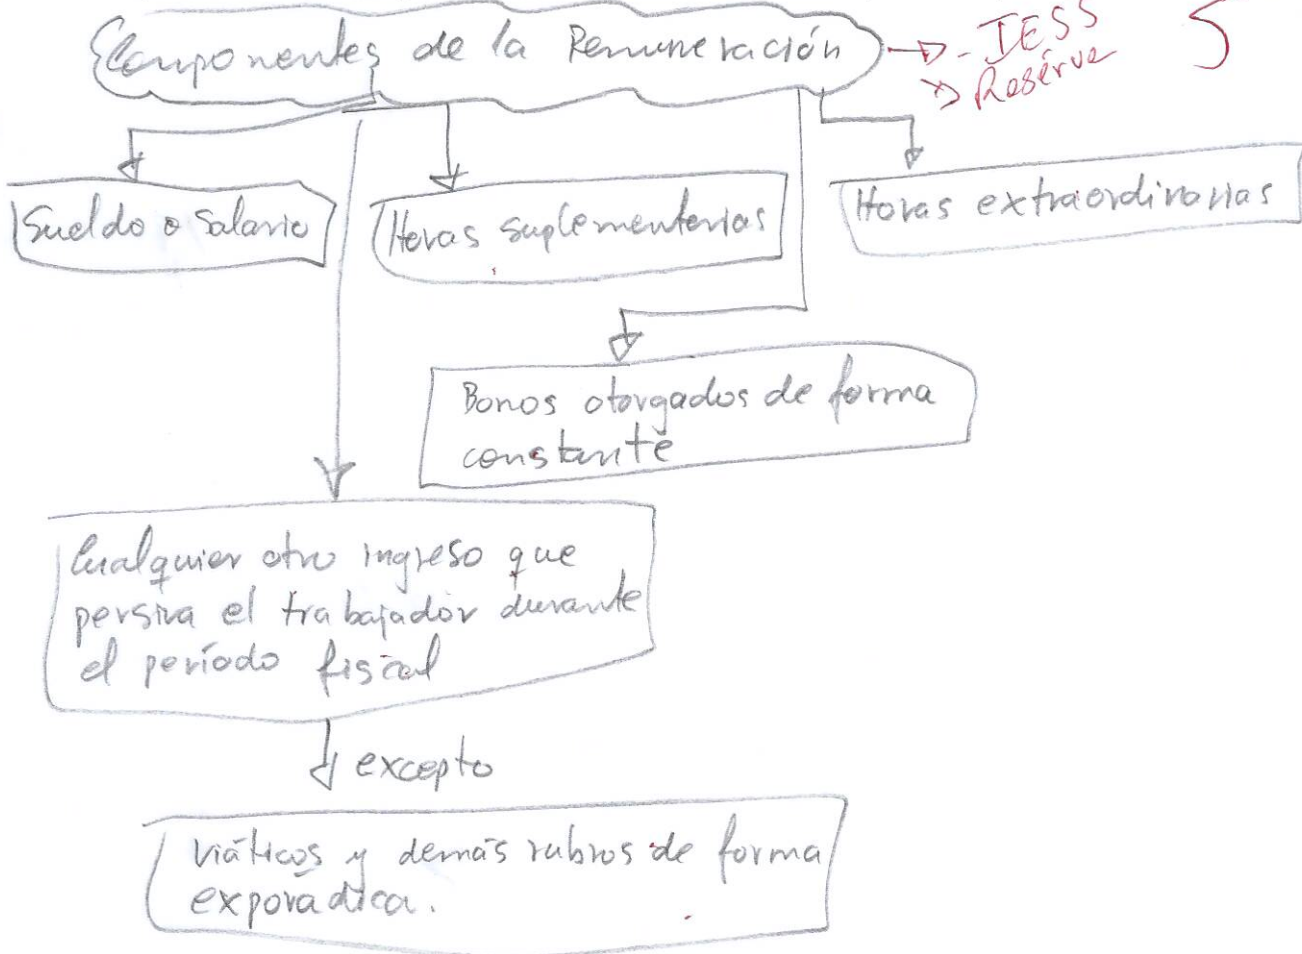 Componentes de la Remuneración
- IESS
Reserve
5
Sueldo o Salario
Horas suplementarias
Horas extraordinarias
Bonos otorgados de forma
constante
Cualquier otro ingreso que
persiva el trabajador durante
el período fiscal
excepto
Viáticos y demás rubros de forma
exporádica.